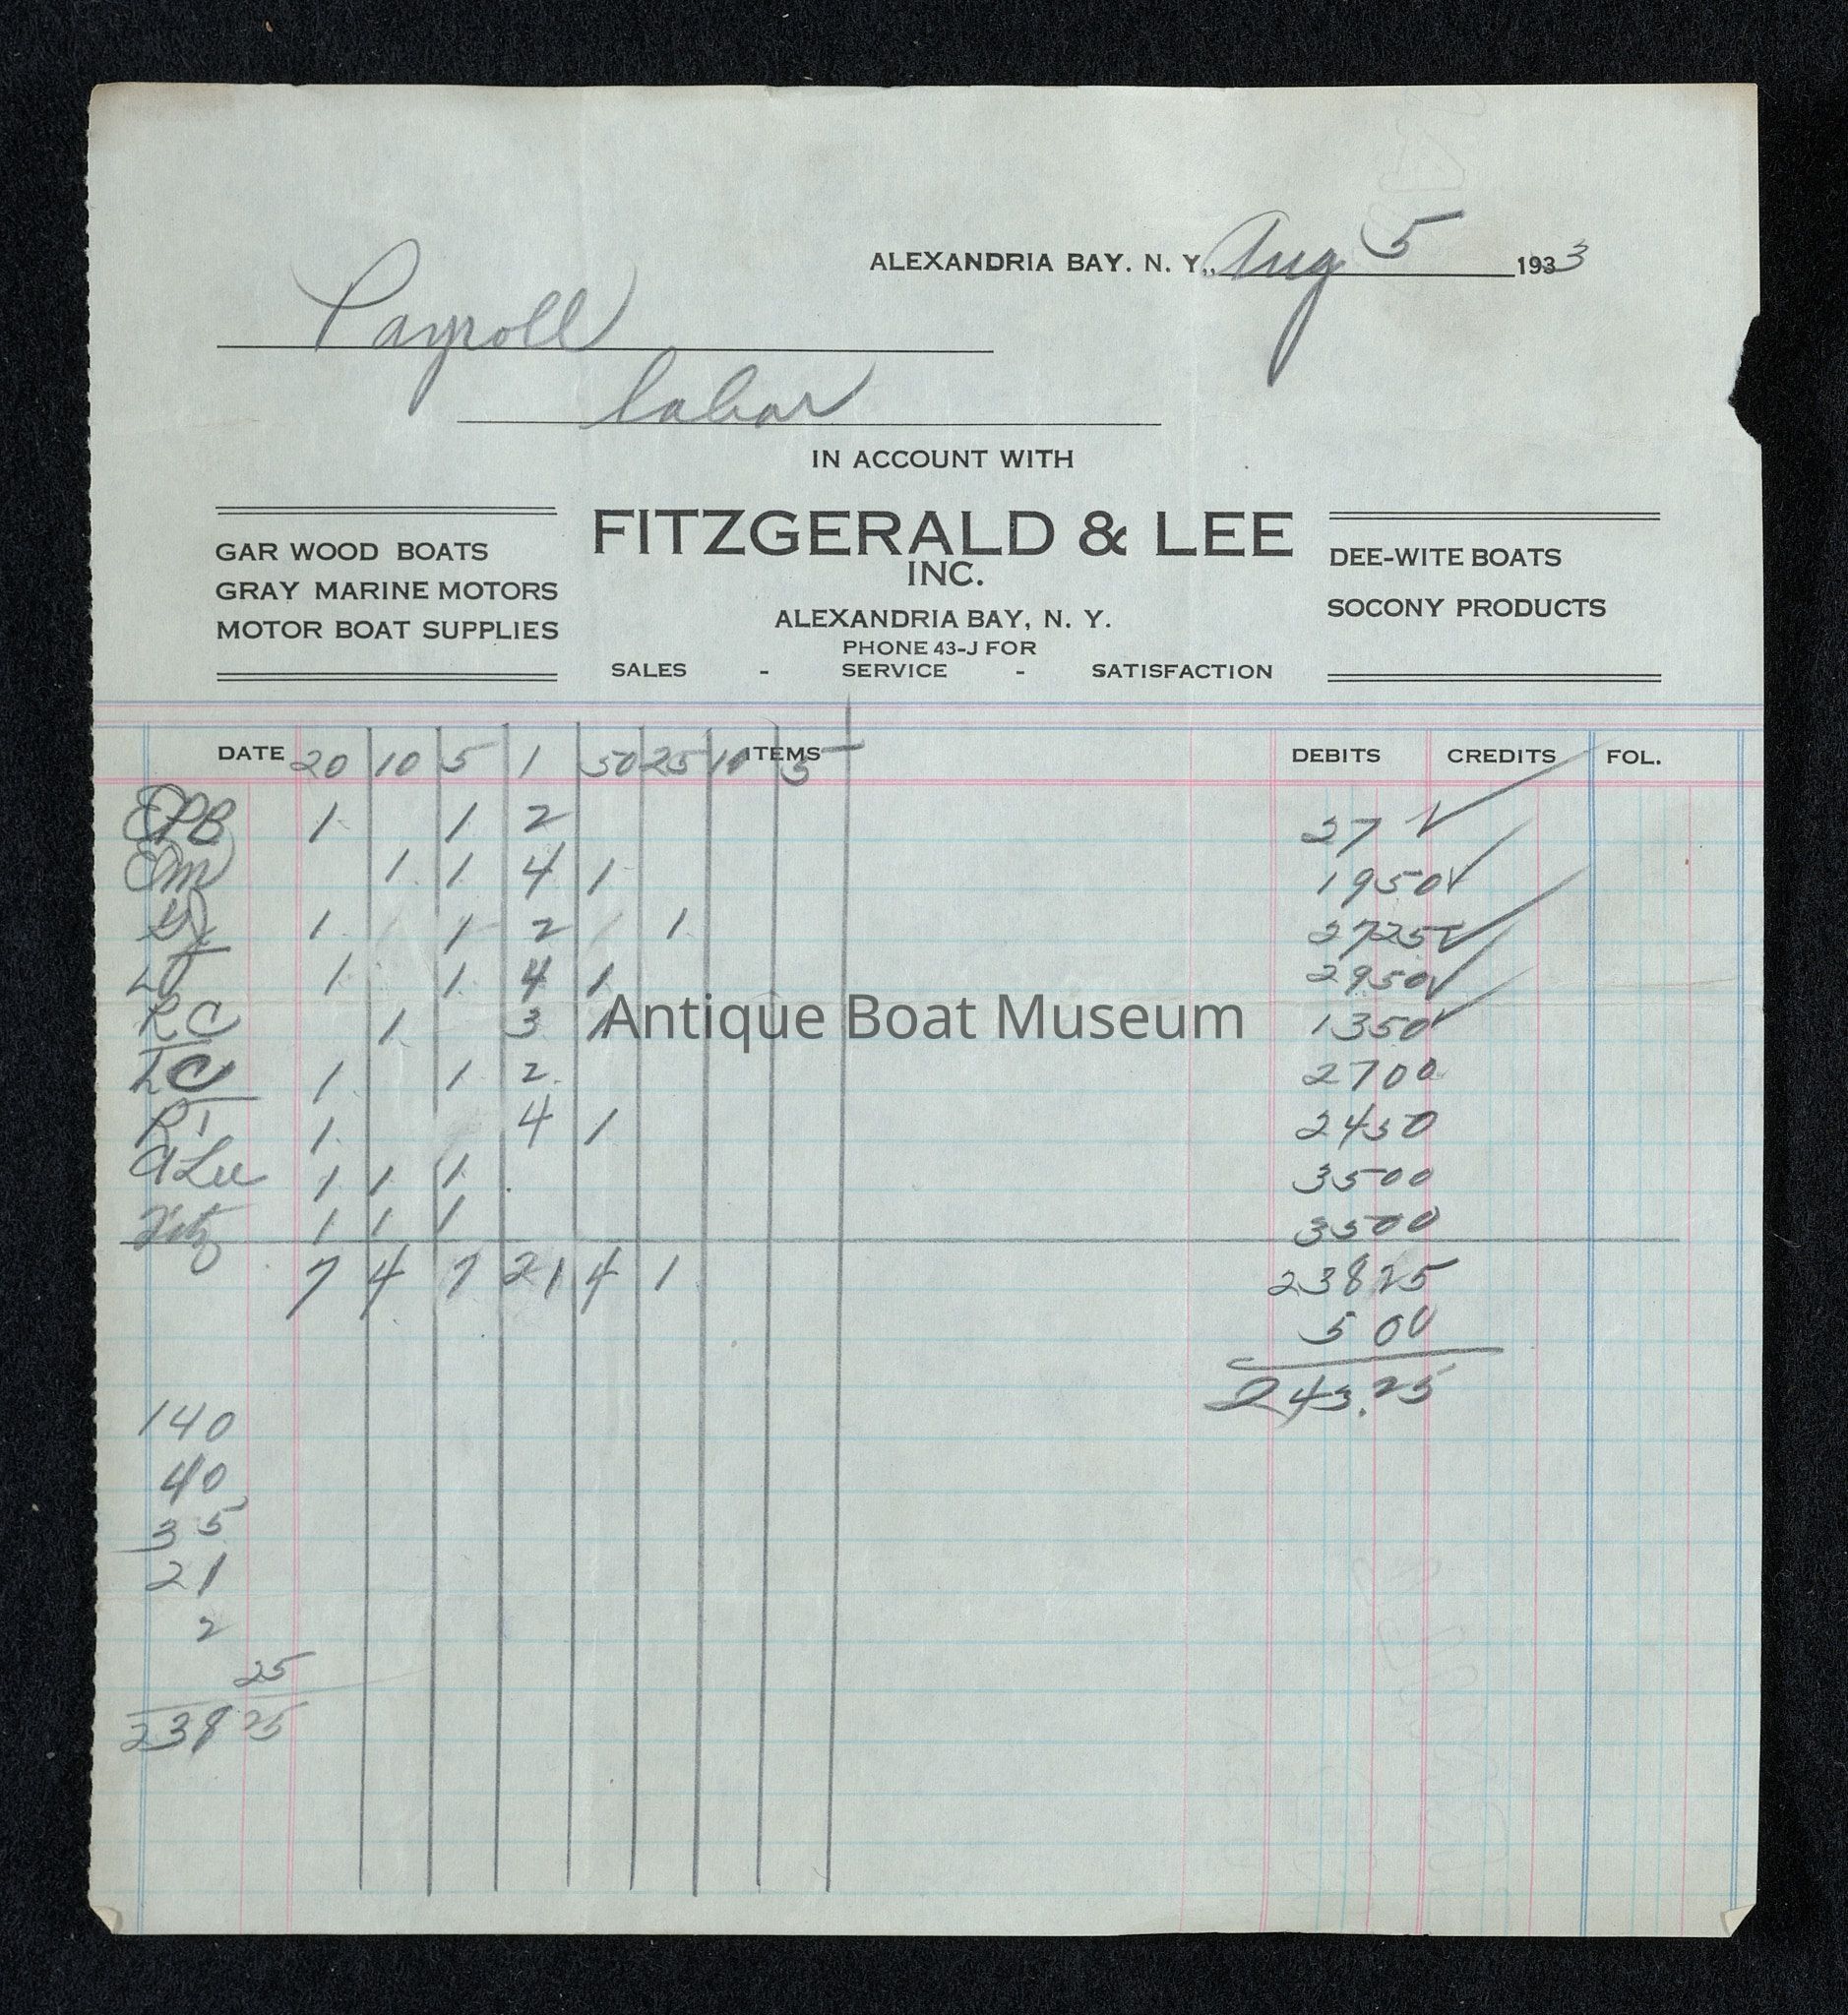 ALEXANDRIA BAY. N. Y., Aug 5 1933
Payroll
labor
IN ACCOUNT WITH
FITZGERALD & LEE
INC.
ALEXANDRIA BAY, N. Y.
PHONE 43-J FOR
SALES - SERVICE - SATISFACTION
GAR WOOD BOATS
GRAY MARINE MOTORS
MOTOR BOAT SUPPLIES
DEE-WITE BOATS
SOCONY PRODUCTS
DATE 20 10 5 1 50 25 10 ITEMS 5 DEBITS CREDITS FOL.
EPB 1 1 2 27 ✓
Em 1 1 4 1 1950 ✓
1 1 2 1 2725 ✓
1 1 4 1 2950 ✓
RC 1 3 1 1350 ✓
LC 1 1 2 2700
RT 1 4 1 2450
A Lee 1 1 1 3500
Fitz 1 1 1 3500
7 4 7 21 4 1 23825
5 00
243.25
140
40
35
21
2
25
238 25
Antique Boat Museum